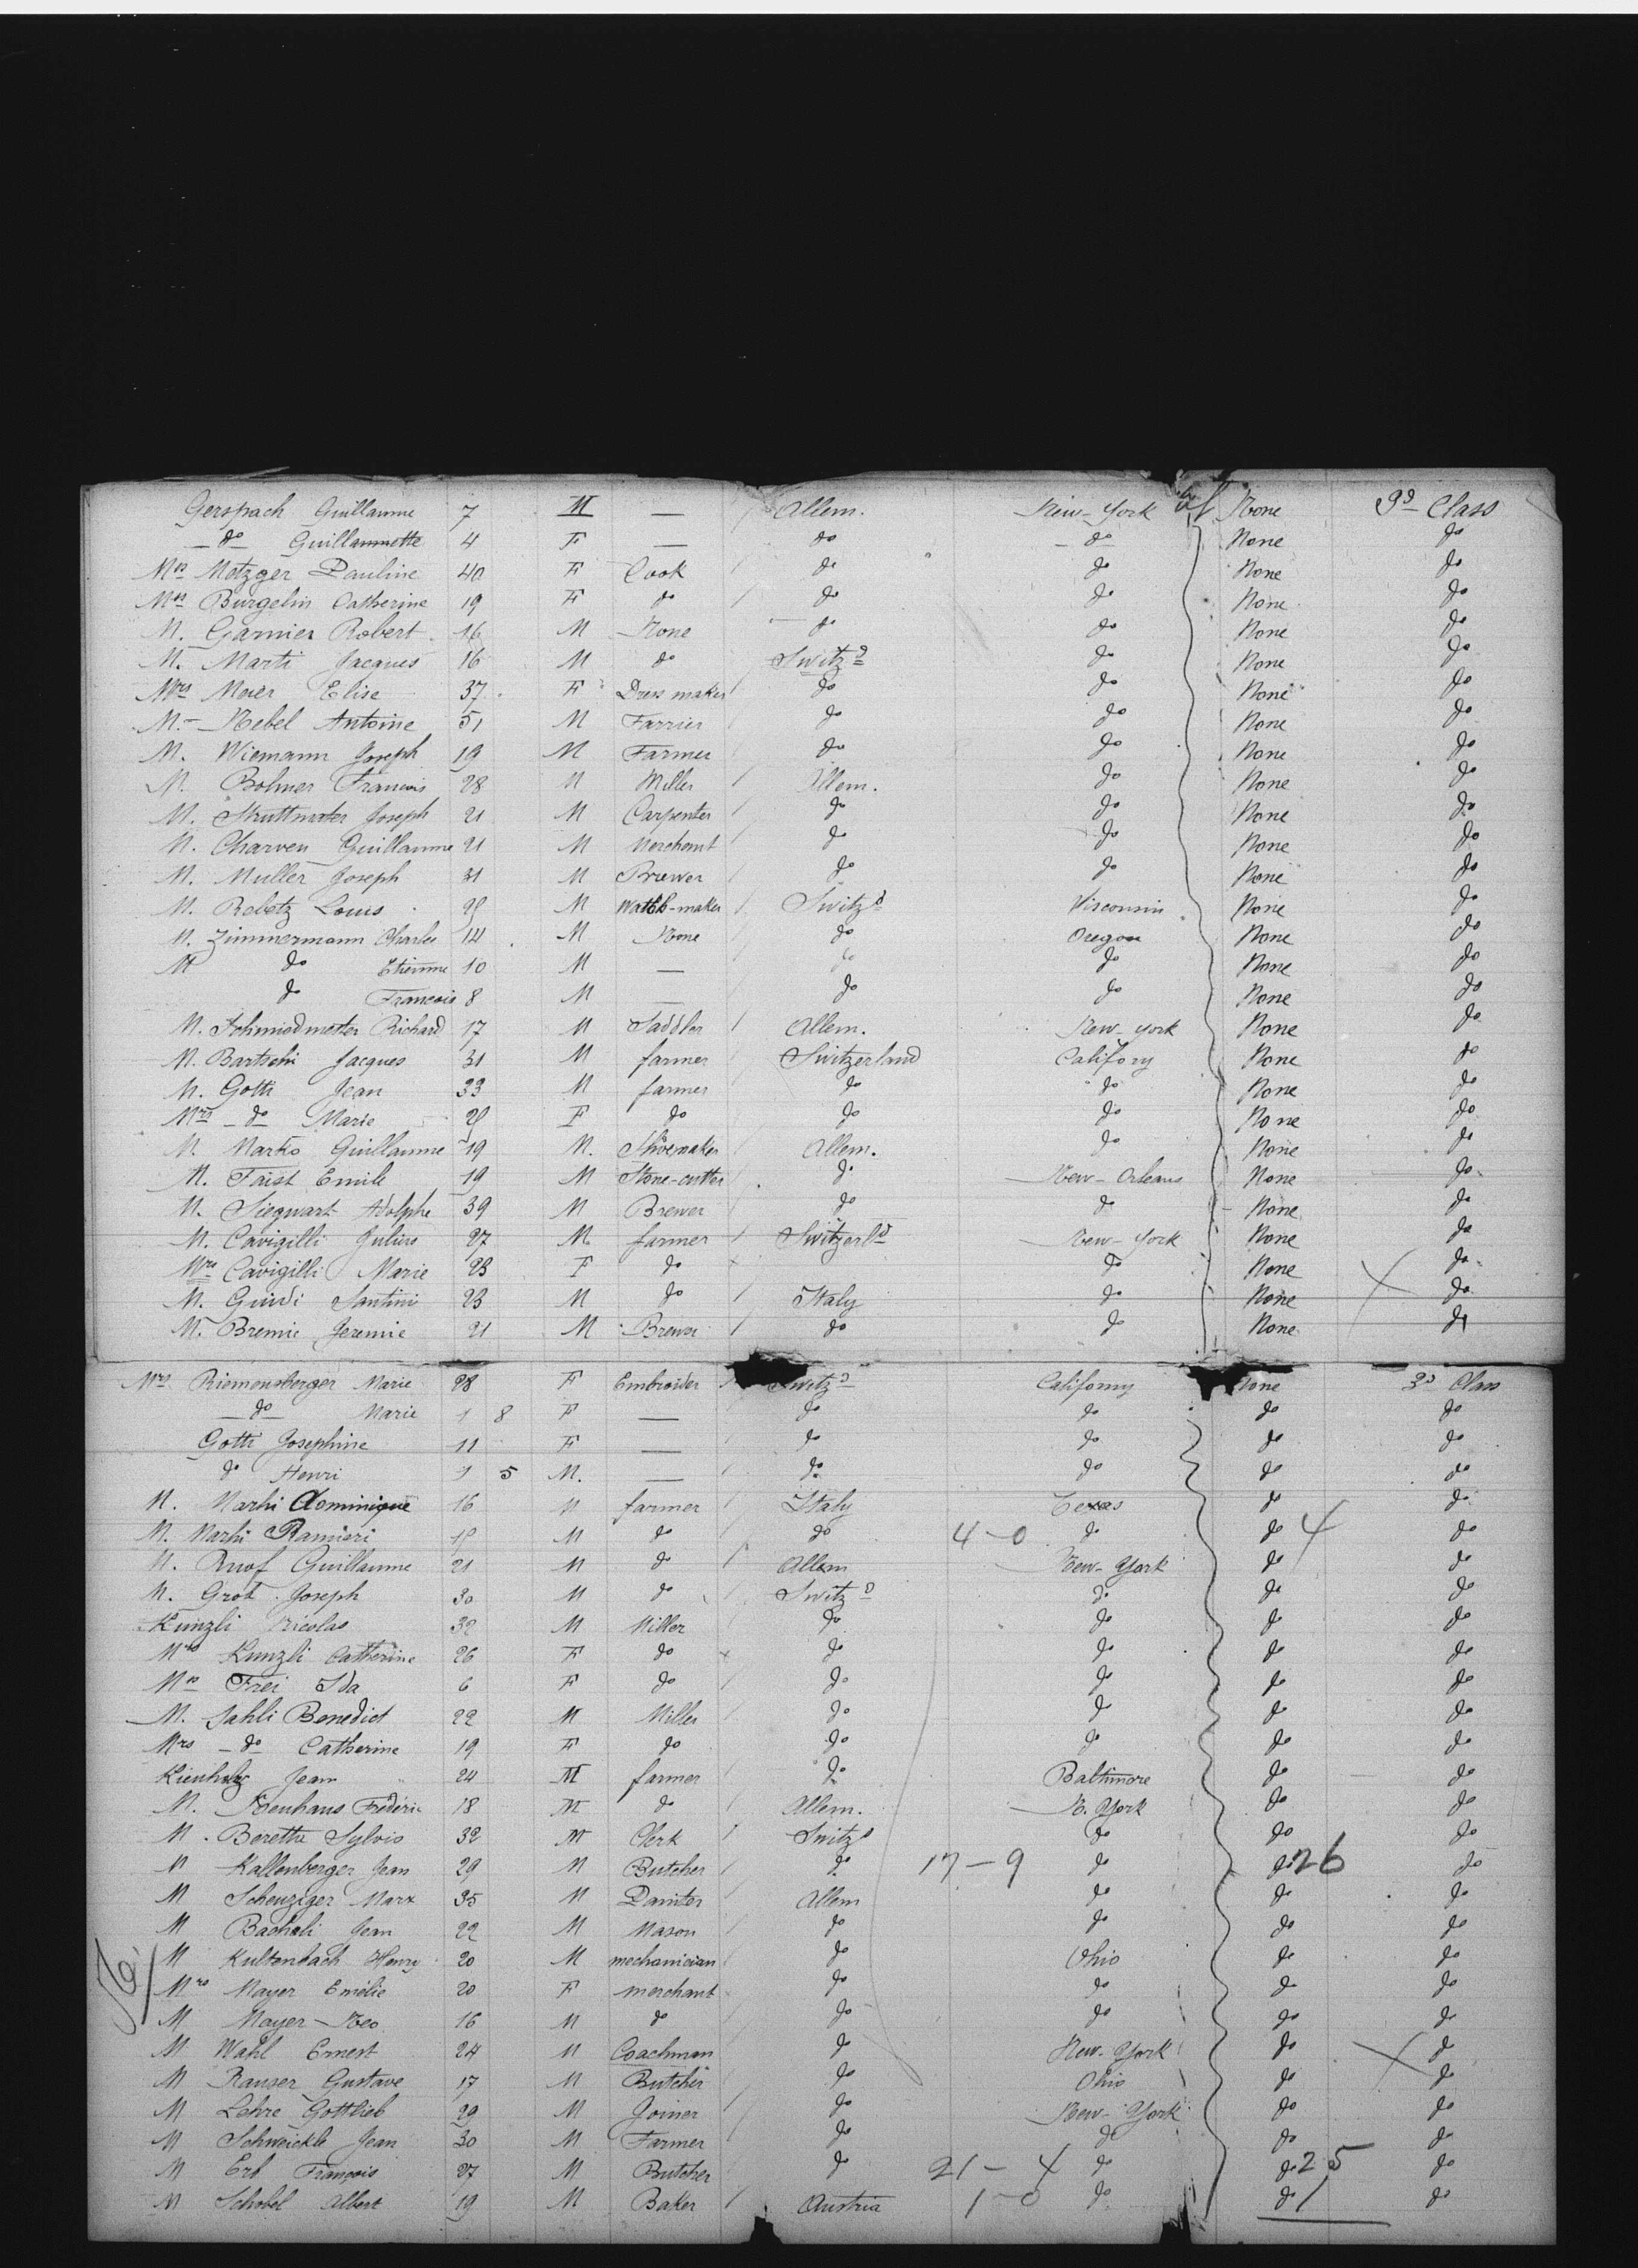 Gerspach Guillaume 7 M — Allem. New-York None 3d Class
—do— Guillaumette 4 F — do —do— None do
Mrs Metzger Pauline 40 F Cook / do do None do
Mrs Burgelin Catherine 19 F do / do do None do
M. Garnier Robert 16 M None do do None do
M. Marti Jacques 16 M do Switzd do None do
Mrs Meier Elise 37 F Dress maker / do do None do
M. Nebel Antoine 51 M Farrier / do do None do
M. Wiemann Joseph 19 M Farmer / do do None do
M. Bohner Francois 28 M Miller / Allem. do None do
M. Struttmater Joseph 21 M Carpenter / do do None do
M. Charven Guillaume 21 M Merchant / do do None do
M. Muller Joseph 31 M Brewer / do do None do
M. Rebetz Louis M Watch-maker / Switzd Visconsin None do
M. Zimmermann Charles 14 M None do Oregon None do
M do Etienne 10 M — do do None do
do Francois 8 M — do do None do
M. Schmiedmetter Richard 17 M Saddler / Allem. New-york None do
M. Bartschi Jacques 31 M farmer / Switzerland Califory None do
M. Gotti Jean 33 M farmer / do do None do
Mrs —do— Marie F do do do None do
M. Marko Guillaume 19 M. Shoemaker / Allem. do None do
M. Faist Emile 19 M Stone-cutter / do New-Orleans None do
M. Siegwart Adolphe 39 M Brewer / do do None do
M. Cavigilli Julius 27 M farmer / Switzerld New-York None do
Mrs Cavigilli Marie 23 F do do None do
M. Guidi Santini 23 M do / Italy do None do
M. Bremie Jeremie 21 M Brewer / do do None do
Mrs Riemensberger Marie 28 F Embroider / Switzd Californy None 3d Class
—do— Marie 1 8 F — do do do do
Gotti Josephine 11 F — do do do do
do Henri 1 5 M. — do do do do
M. Marhi Dominique 16 M farmer / Italy Texas do do
M. Marhi Ramieri M do / do 4-0 do do 4 do
M. Ruof Guillaume 21 M do / Allem New-York do do
M. Grot Joseph 30 M do / Switzd do do do
Kunzli Nicolas 32 M Miller do do do do
Mrs Kunzli Catherine 26 F do do do do do
Mrs Frei Ida 6 F do do do do do
M. Sahli Benedict 22 M Miller / do do do do
Mrs —do— Catherine 19 F do do do do do
Kienholz Jean 24 M farmer / do Baltimore do do
M. Neuhaus Frederic 18 M do / Allem. N. York do do
M. Beretta Sylvio 32 M Clerk / Switzd do do do
M Kallenberger Jean 29 M Butcher / do 17-9 do do 26 do
M Scheuziger Marx 35 M Painter / Allem do do do
M Bachali Jean 22 M Mason / do do do do
M Kultenbach Henry 20 M mechanician / do Ohio do do
Mrs Mayer Emélie 20 F merchant do do do do
M Mayer Neo 16 M do / do do do do
M Wahl Ernest 24 M Coachman / do New-York do do
M Rauser Gustave 17 M Butcher / do Ohio do do
M Lehre Gottlieb 29 M Joiner / do New-York do do
M Schweickle Jean 30 M Farmer / do do do do
M Erb François 27 M Butcher / do 21-4 do do 25 do
M Schobel Albert 19 M Baker / Austria 1-0 do do 1 do